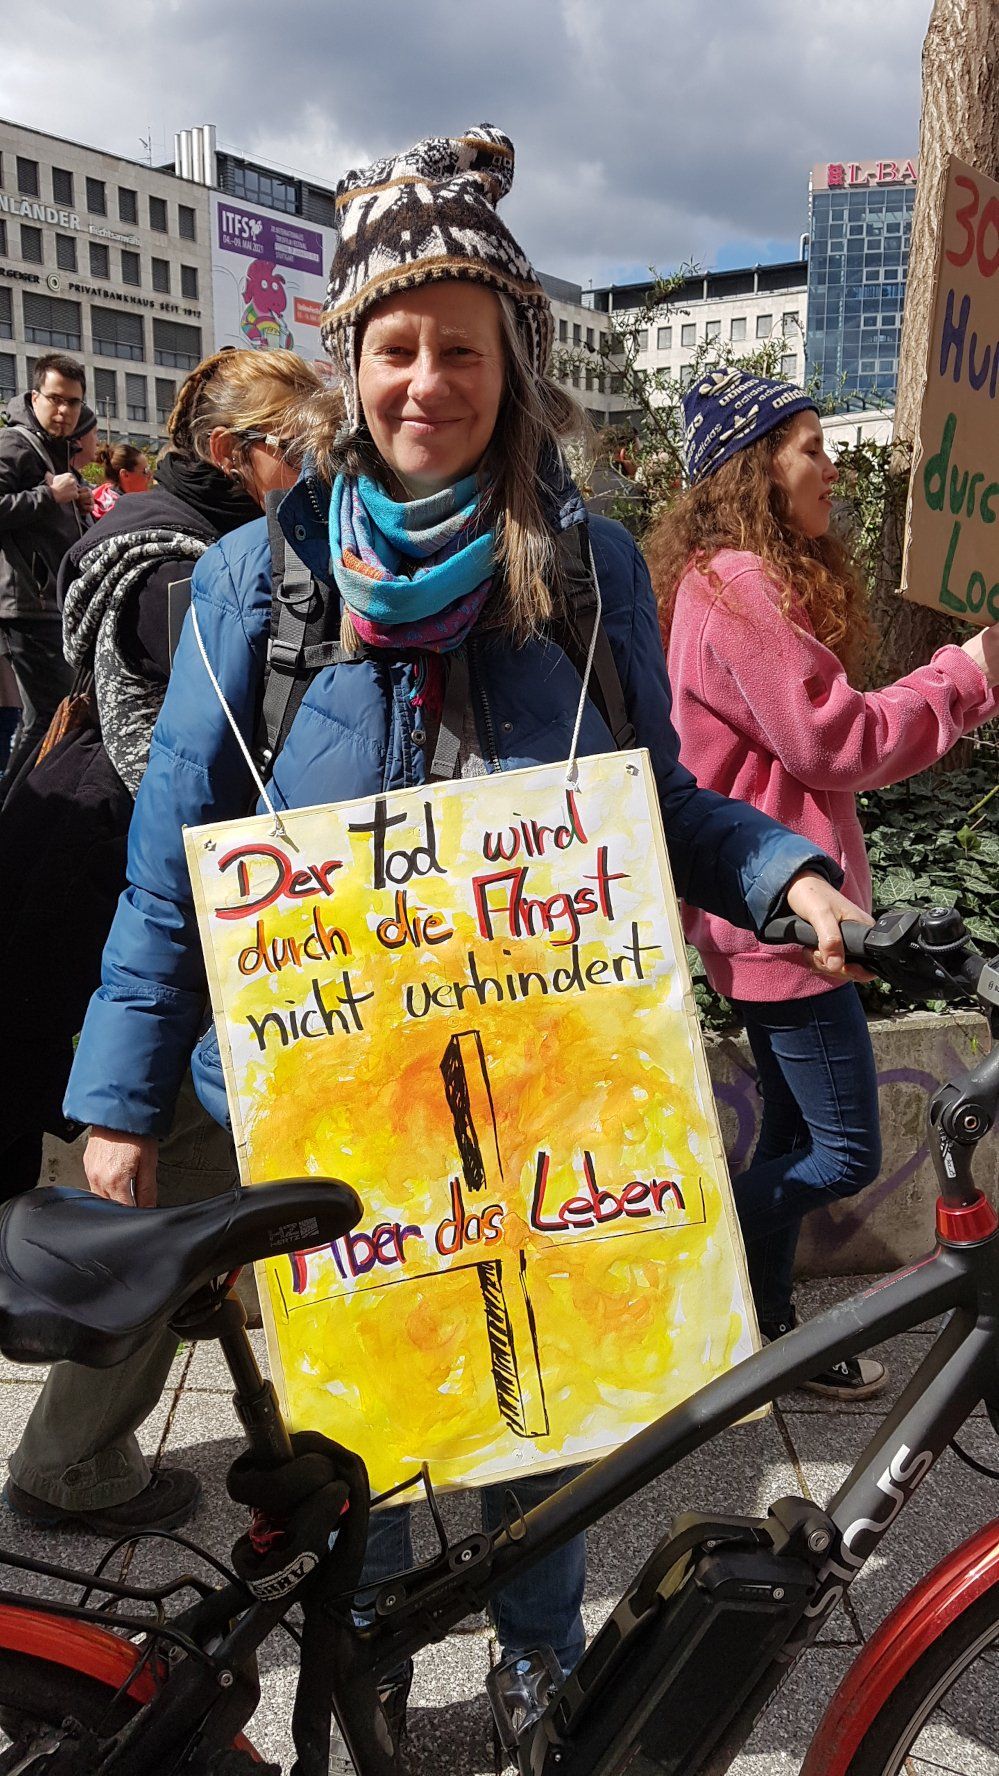 NLÄNDER Rechtsanwälte
PRIVATBANKHAUS SEIT 1912
ITFS
04.-09. MAI 2021
L-BA
adidas
30
Hun
durc
Loc
Der Tod wird
durch die Angst
nicht verhindert
Aber das Leben
HERTZ
sinus